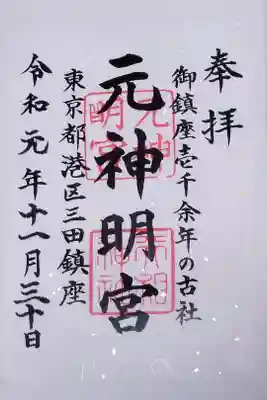 奉拝
御鎮座壱千余年の古社
元神明宮
東京都港区三田鎮座
令和元年十一月三十日
元神
明宮